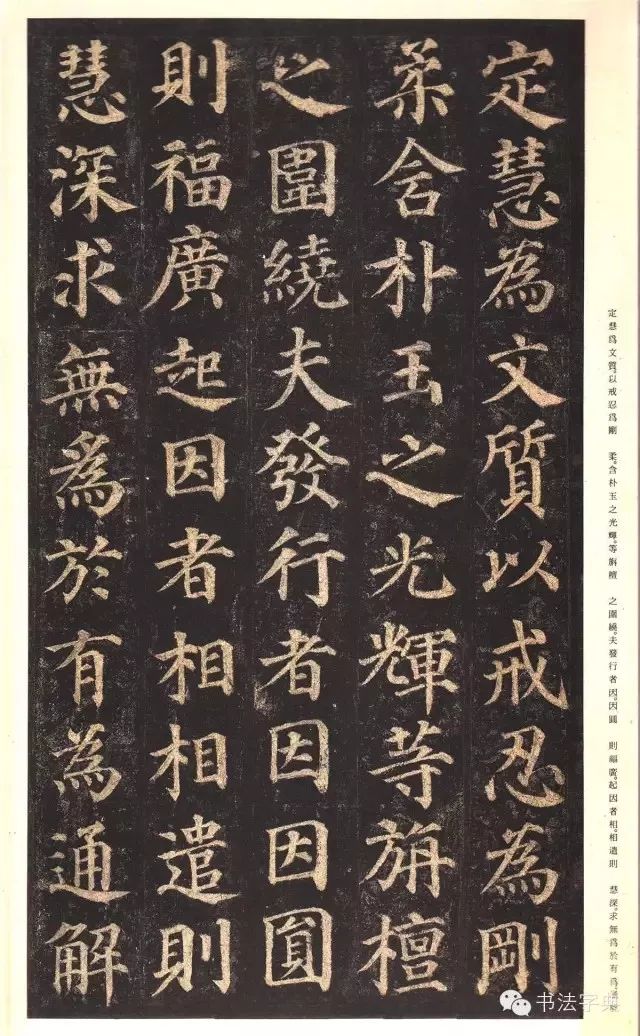 定慧為文質以戒忍為剛
柔含朴玉之光輝等旃檀
之圍繞夫發行者因因圓
則福廣起因者相相遣則
慧深求無為於有為通解
定慧爲文質。以戒忍爲剛　柔。含朴玉之光輝。等旃檀　之圍繞。夫發行者因。因圓　則福廣。起因者相。相遣則　慧深。求無爲於有爲
书法字典